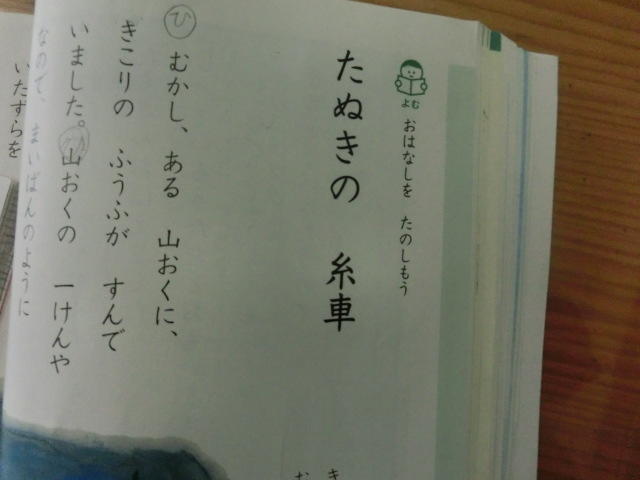 よむ
おはなしを たのしもう
たぬきの 糸車
ひ
むかし、ある 山おくに、
きこりの ふうふが すんで
いました。山おくの 一けんや
なので、まいばんのように
いたずらを
き
お